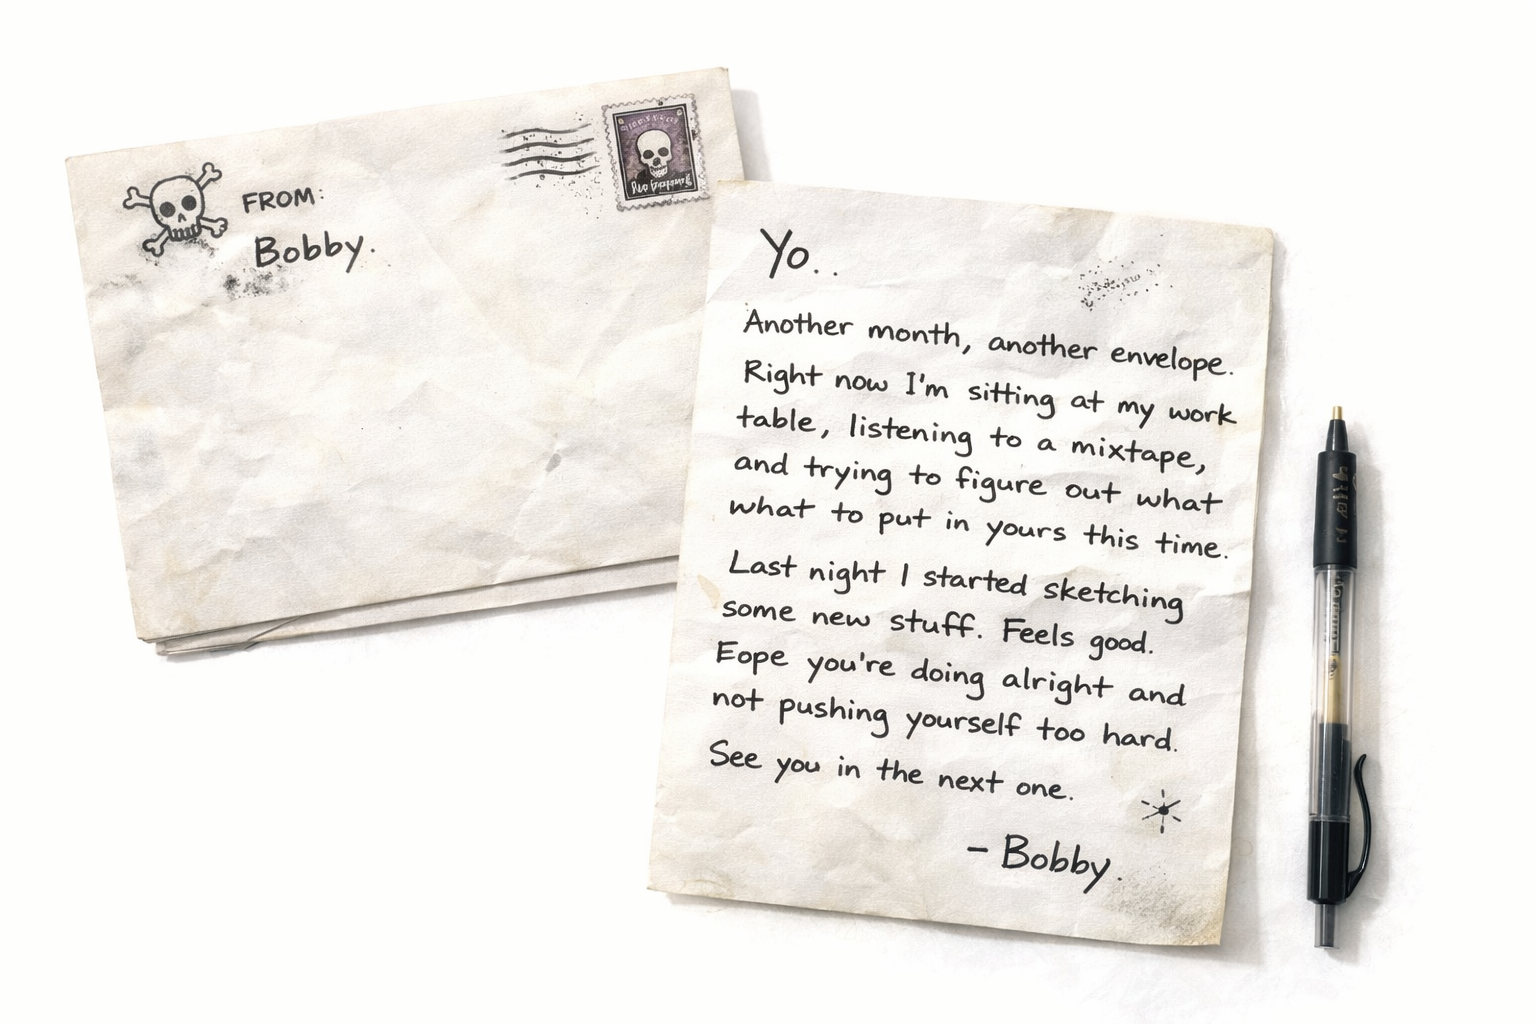 FROM:
Bobby.
Yo..
Another month, another envelope.
Right now I'm sitting at my work
table, listening to a mixtape,
and trying to figure out what
what to put in yours this time.
Last night I started sketching
some new stuff. Feels good.
Eope you're doing alright and
not pushing yourself too hard.
See you in the next one.
– Bobby.